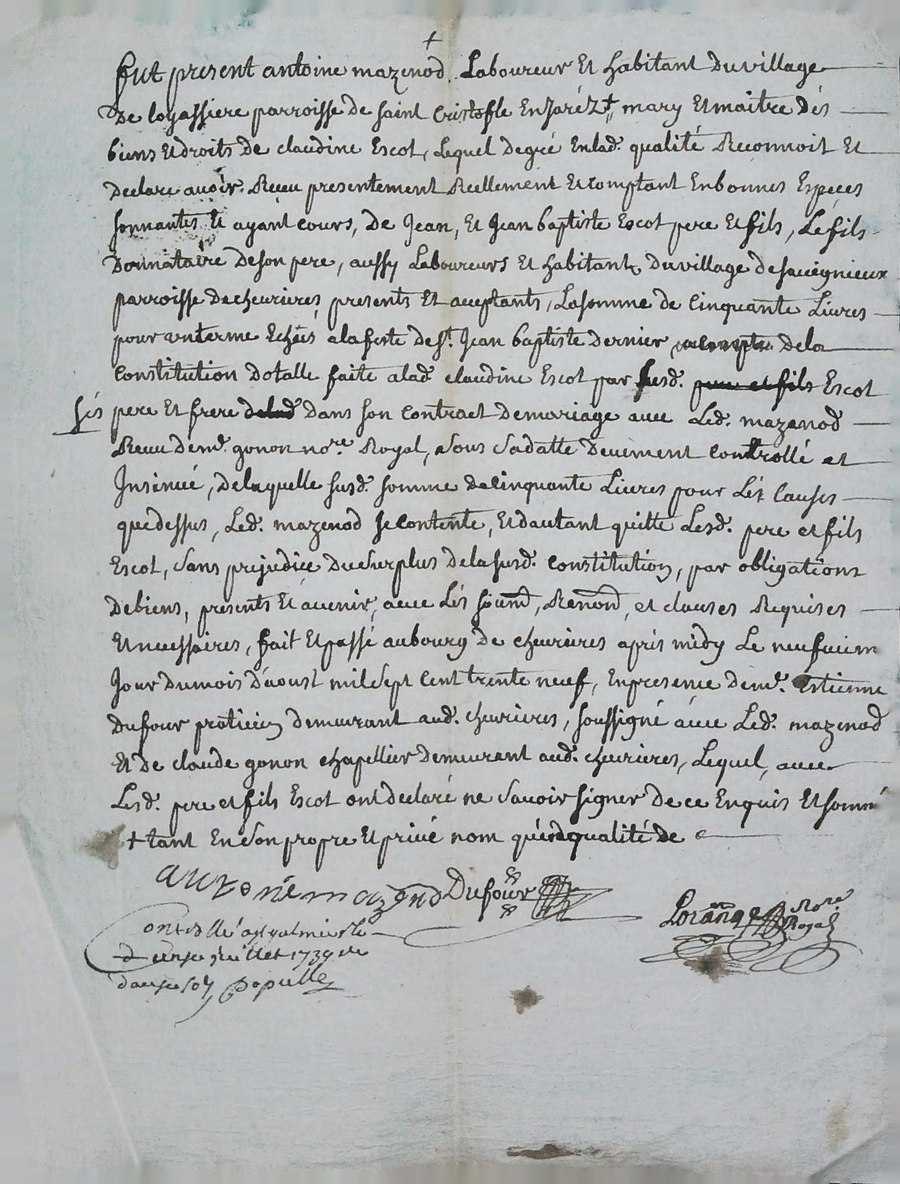 +
fut present antoine mazenod. Laboureur Et habitant Du village
De loyassiere parroisse de saint Cristofle En Jarézt, mary Et maitre dés
biens Et droits de claudine Escot, Lequel de gré En lad. qualité Reconnoit Et
declare avoir Receu presentement Reellement Et comptant En bonnes Especes
sonnantes Et ayant cours, De Jean, Et Jean baptiste Escot pere Et fils, Le fils
Donnataire De son pere, aussy Laboureurs Et habitants Du village de
parroisse de chevrieres presents Et acceptants, La somme de Cinquante Livres
pour un terme Echeü a la feste de st. Jean baptiste dernier a compte de la
Constitution Dotalle faite a lad. claudine Escot par susd. pere et fils Escot
sés pere Et frere de lad Dans son Contract de mariage avec Led. mazenod
Receu de me. gonon nore. Royal, sous sa datte Deuement Controllé et
Insinué, De laquelle susd. somme de cinquante Livres pour Lés Causes
que dessus, Led. mazenod se contente, Et d'autant quitte Lesd. pere et fils
Escot, sans prejudice Du surplus de la susd. Constitution, par obligations
De biens, presents Et avenir, avec Lés soumd, Renond, et clauses Requises
Et necessaires, fait Et passé au bourg de chevrieres aprés midy Le neufviem
Jour du mois d'aoust mil sept Cent trente neuf, En presence de me. Estienne
Dufour praticien demeurant aud. chevrieres, soussigné avec Led. mazenod
Et de claude gonon chapellier demeurant aud. chevrieres, Lequel, avec
Lesd. pere et fils Escot ont declaré ne savoir signer de ce Enquis Et sommé
+ tant En son propre Et privé nom qu'en qualité de
antoine mazenod Dufour
Lorange Nore. Royal
Controllé a st galmier le
juillet 1739
douze sols Populle